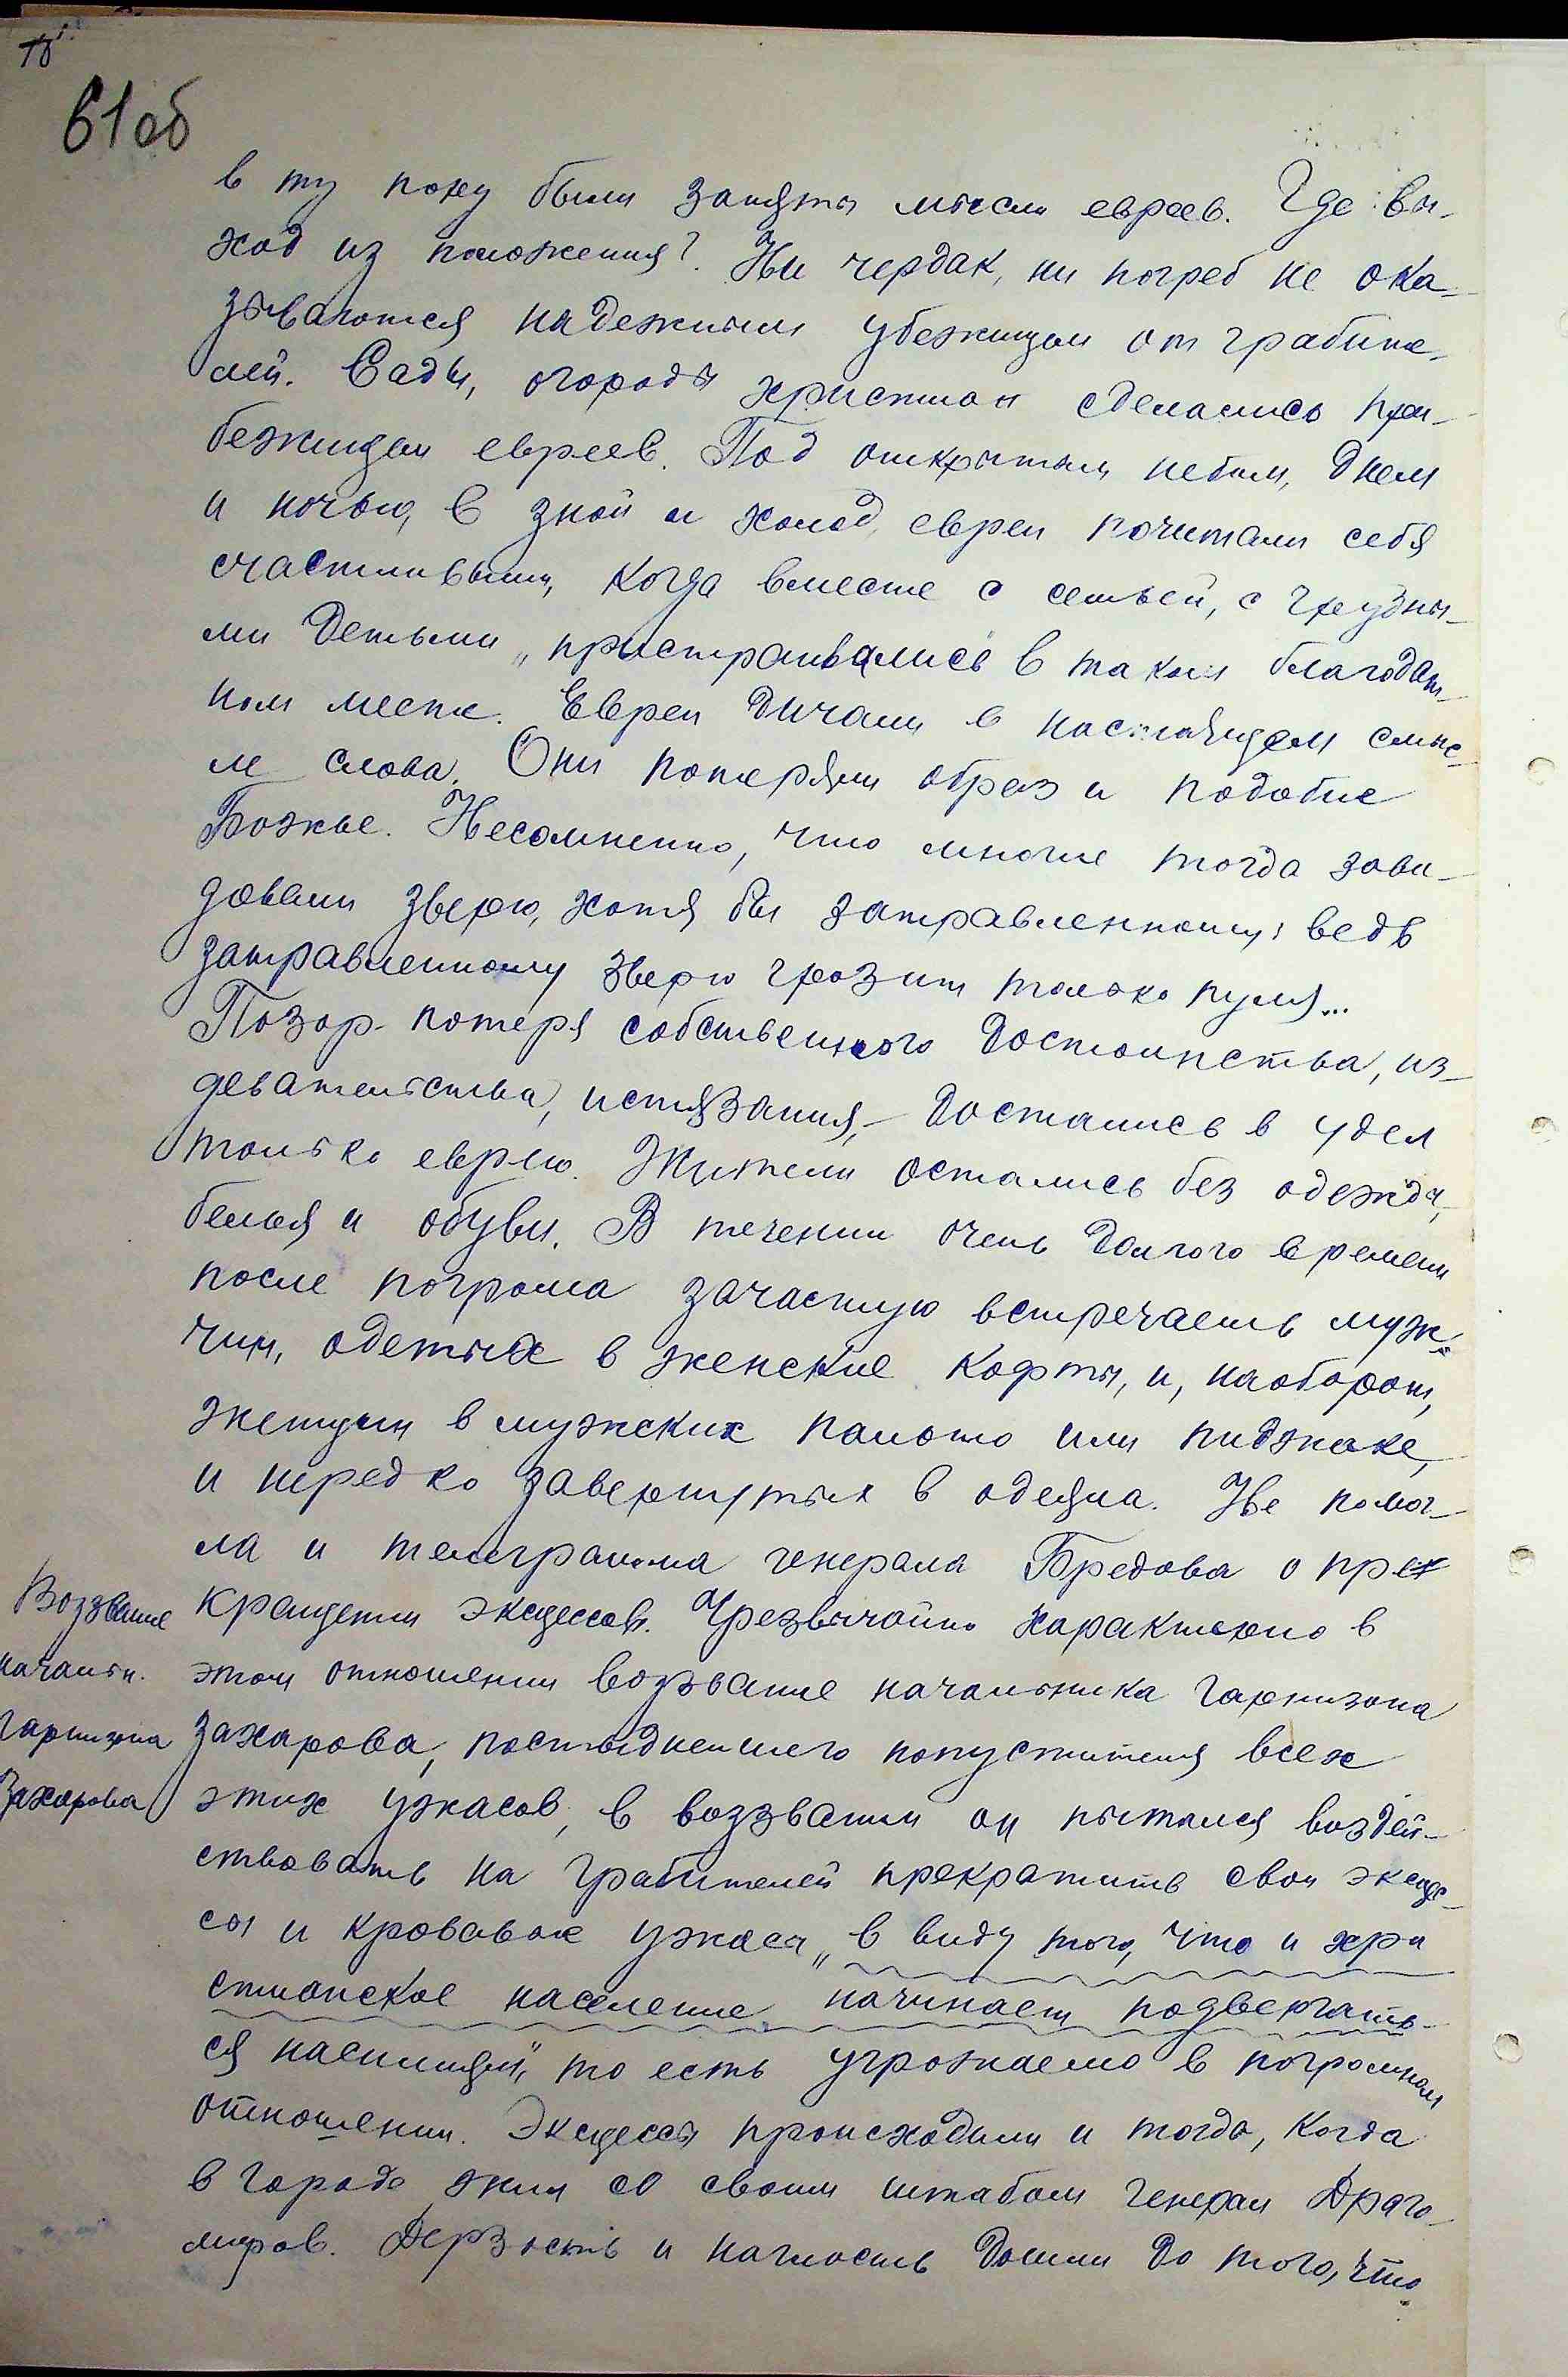 61об
в ту пору были заняты мысли евреев. Где вы-
ход из положения? Ни чердак, ни погреб не ока-
зываются надежным убежищем от грабите-
лей. Сады, огороды христиан сделались при-
бежищем евреев. Под открытым небом, днем
и ночью, в зной и холод, евреи почитали себя
счастливыми, когда вместе с семьей, с грудны-
ми детьми „пристраивались в таком благодат-
ном месте. Евреи дичали в настоящем смыс-
ле слова. Они потеряли образ и подобие
Божье. Несомненно, что многие тогда зави-
довали зверю, хотя бы затравленному: ведь
затравленному зверю грозит только пуля...
Позор - потеря собственного достоинства, из-
девательства, истязания, - достались в удел
только еврею. Жители остались без одежды,
белья и обуви. В течении очень долгого времени
после погрома зачастую встречаешь муж-
чин, одетых в женские кофты, и, наоборот,
женщин в мужских пальто или пиджаке,
и нередко завернутых в одеяла. Не помог-
ла и телеграмма генерала Бредова о пре-
Воззвание кращении эксцессов. Чрезвычайно характерно в
начальн. этом отношении воззвание начальника гарнизона
гарнизона Захарова, постыднейшего попустителя всех
Захарова этих ужасов, в воззвании он пытался воздей-
ствовать на грабителей прекратить свои эксце-
сы и кровавые ужасы „в виду того, что и хри
стианское население начинает подвергать-
ся насилиям“, то есть угрожаемо в погромном
отношении. Эксцессы происходили и тогда, когда
в городе жил со своим штабом генерал Драго-
миров. Дерзость и наглость дошли до того, что